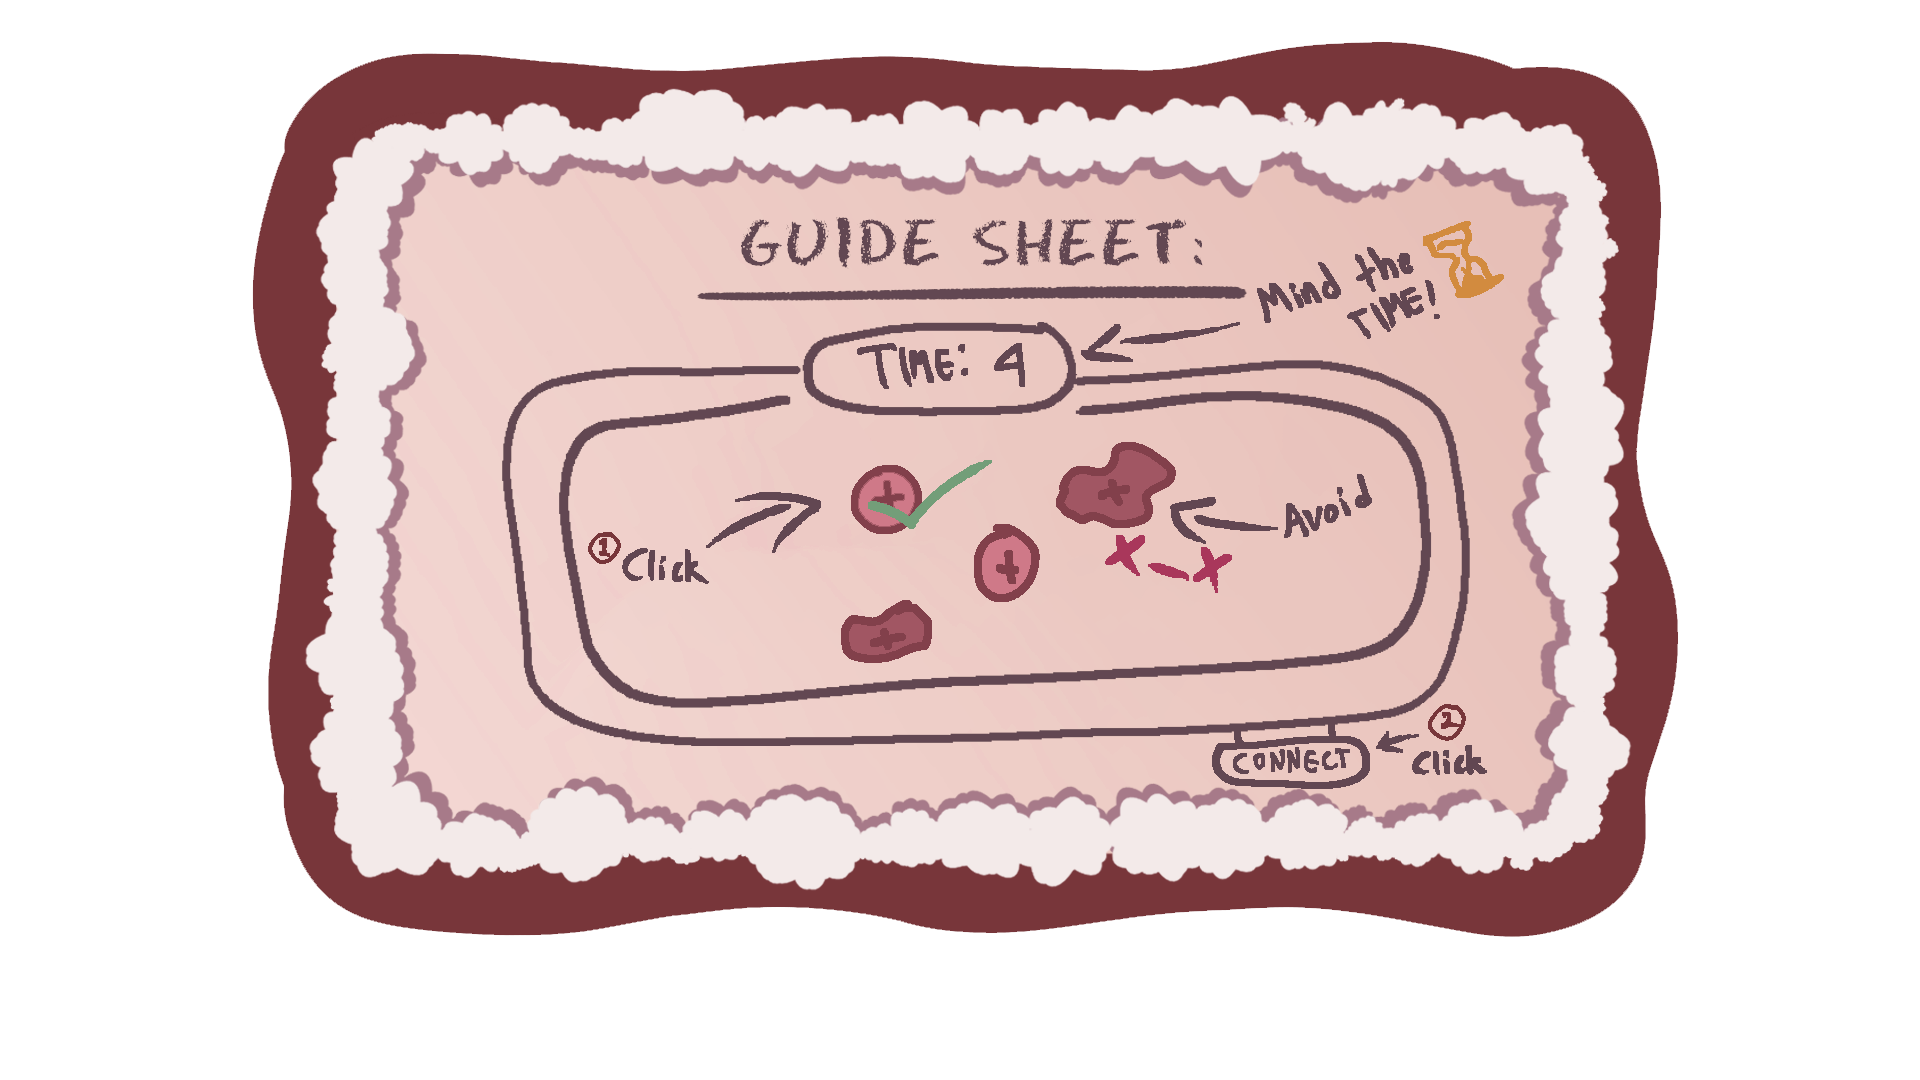 GUIDE SHEET:
Mind the
TIME!
TIME: 4
Avoid
1 Click
CONNECT
2
Click